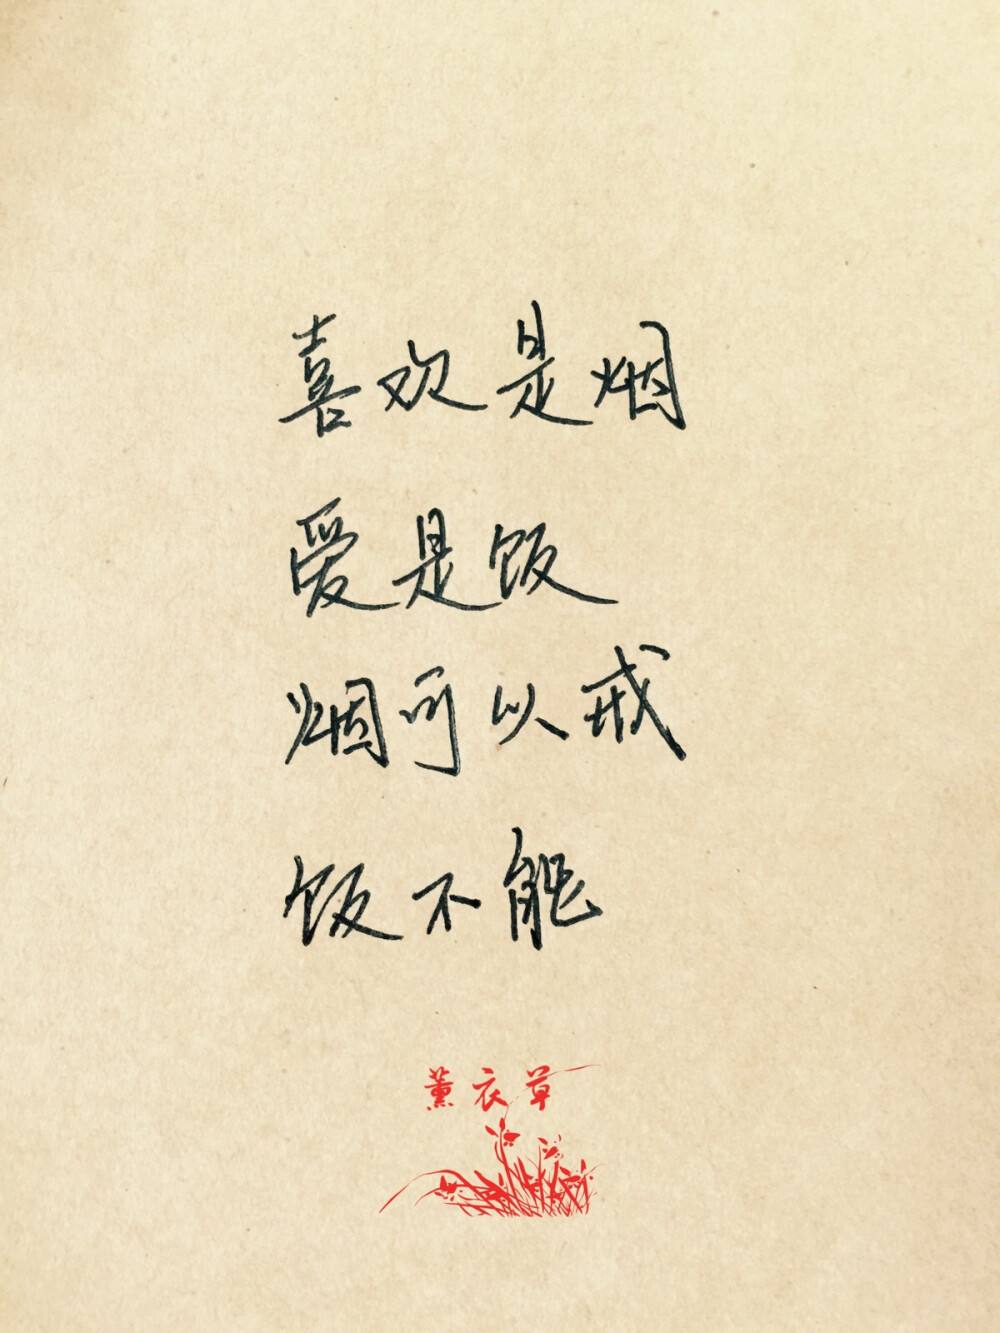 喜欢是烟
爱是饭
烟可以戒
饭不能
薰衣草